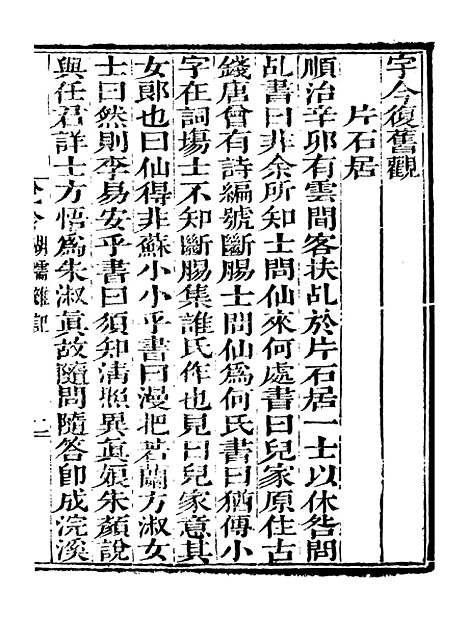 字今復舊觀
片石居
順治辛卯有雲間客扶乩於片石居一士以休咎問
乩書曰非余所知士問仙來何處書曰兒家原住古
錢唐曾有詩編號斷腸士問仙爲何氏書曰猶傳小
字在詞塲士不知斷腸集誰氏作也見曰兒家意其
女郎也曰仙得非蘇小小乎書曰漫把若蘭方淑女
士曰然則李易安乎書曰須知清照異眞娘朱顏說
與任君詳士方悟爲朱淑眞故隨問隨答卽成浣溪
湖壖雜記